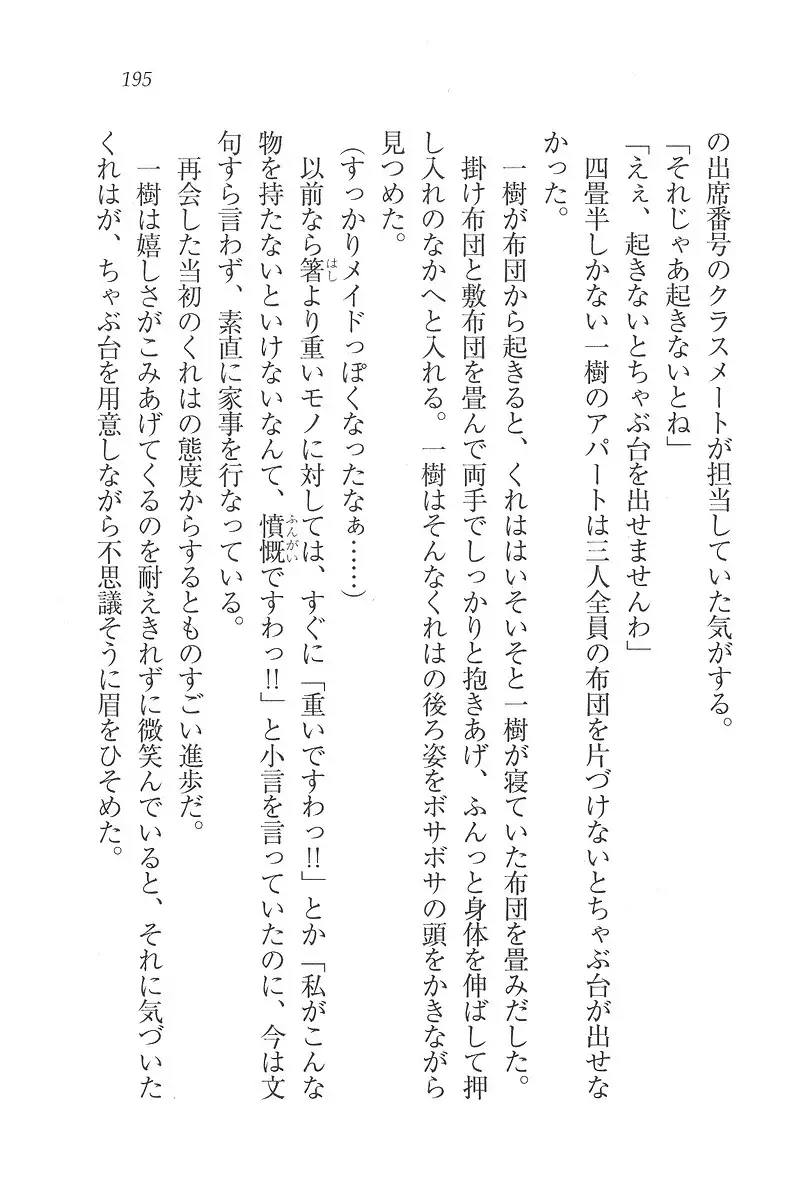 195
の出席番号のクラスメートが担当していた気がする。
「それじゃあ起きないとね」
「えぇ、起きないとちゃぶ台を出せませんわ」
四畳半しかない一樹のアパートは三人全員の布団を片づけないとちゃぶ台が出せな
かった。
一樹が布団から起きると、くれははいそいそと一樹が寝ていた布団を畳みだした。
掛け布団と敷布団を畳んで両手でしっかりと抱きあげ、ふんっと身体を伸ばして押
し入れのなかへと入れる。一樹はそんなくれはの後ろ姿をボサボサの頭をかきながら
見つめた。
(すっかりメイドっぽくなったなぁ……)
以前なら箸より重いモノに対しては、すぐに「重いですわっ!!」とか「私がこんな
はし
物を持たないといけないなんて、憤慨ですわっ!!」と小言を言っていたのに、今は文
ふんがい
句すら言わず、素直に家事を行なっている。
再会した当初のくれはの態度からするとものすごい進歩だ。
一樹は嬉しさがこみあげてくるのを耐えきれずに微笑んでいると、それに気づいた
くれはが、ちゃぶ台を用意しながら不思議そうに眉をひそめた。